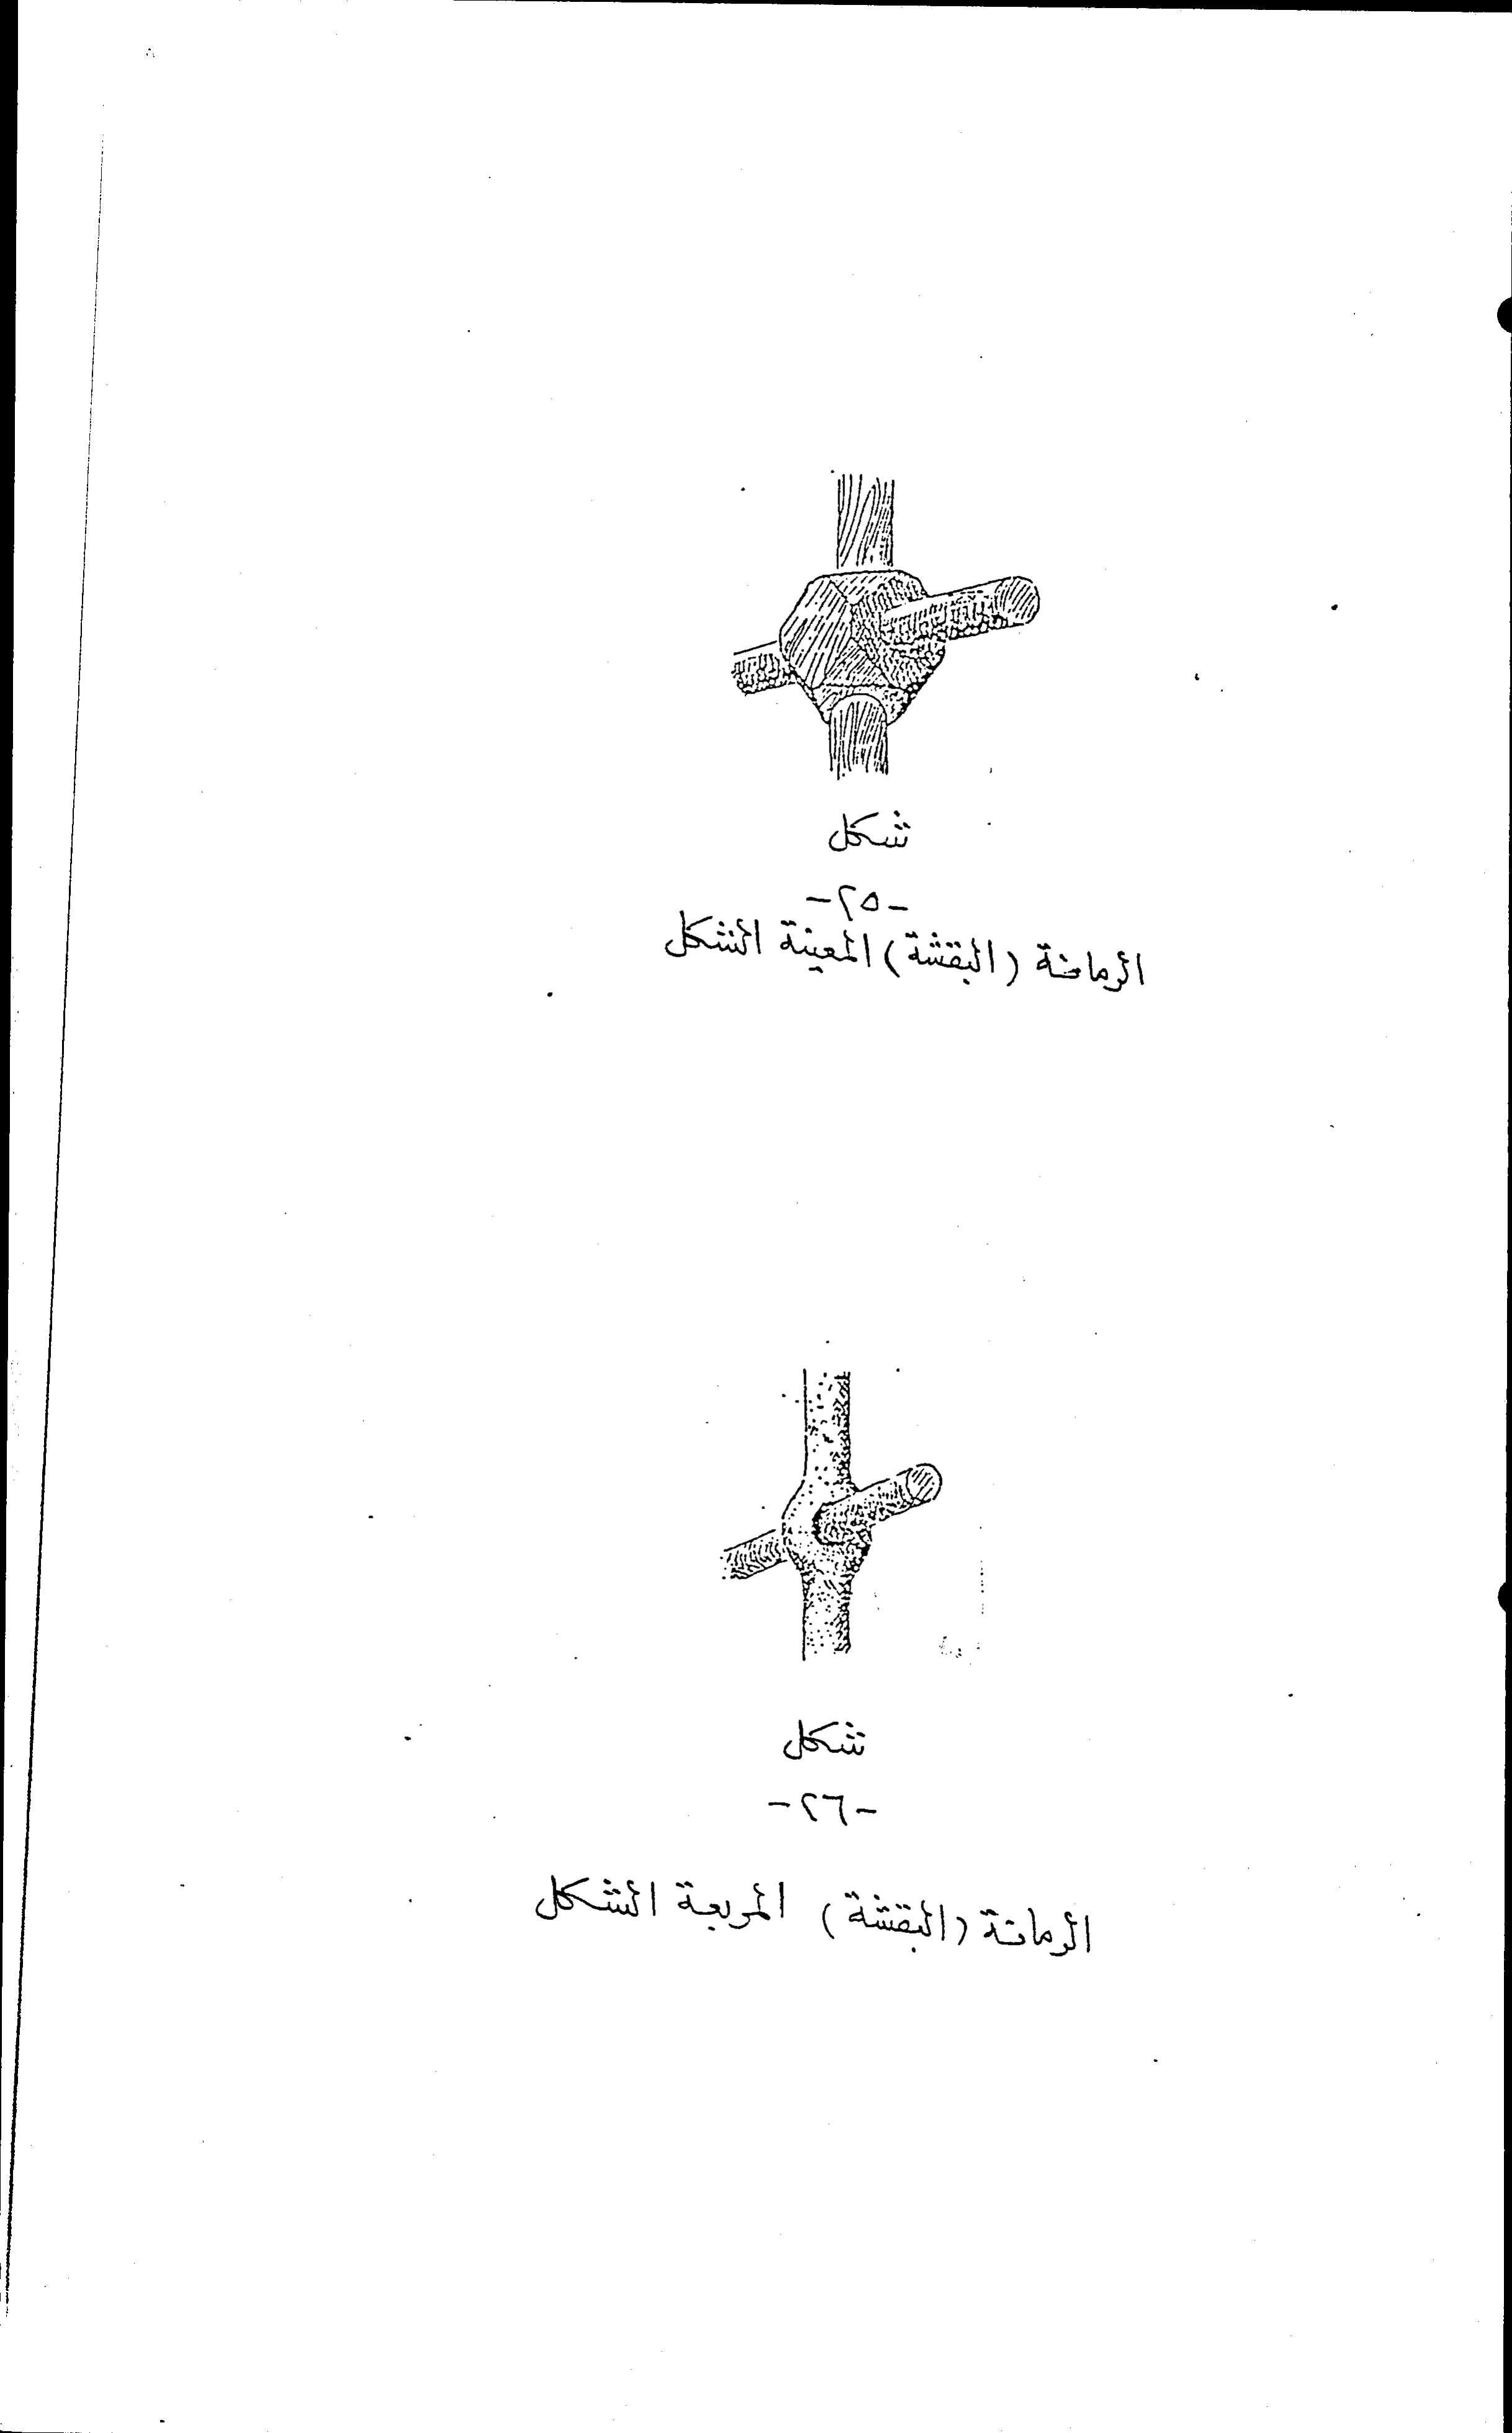 شكل
-٢٥-
الرمانة (البقشة) المعينة الشكل
شكل
-٢٦-
الرمانة (البقشة) المربعة الشكل